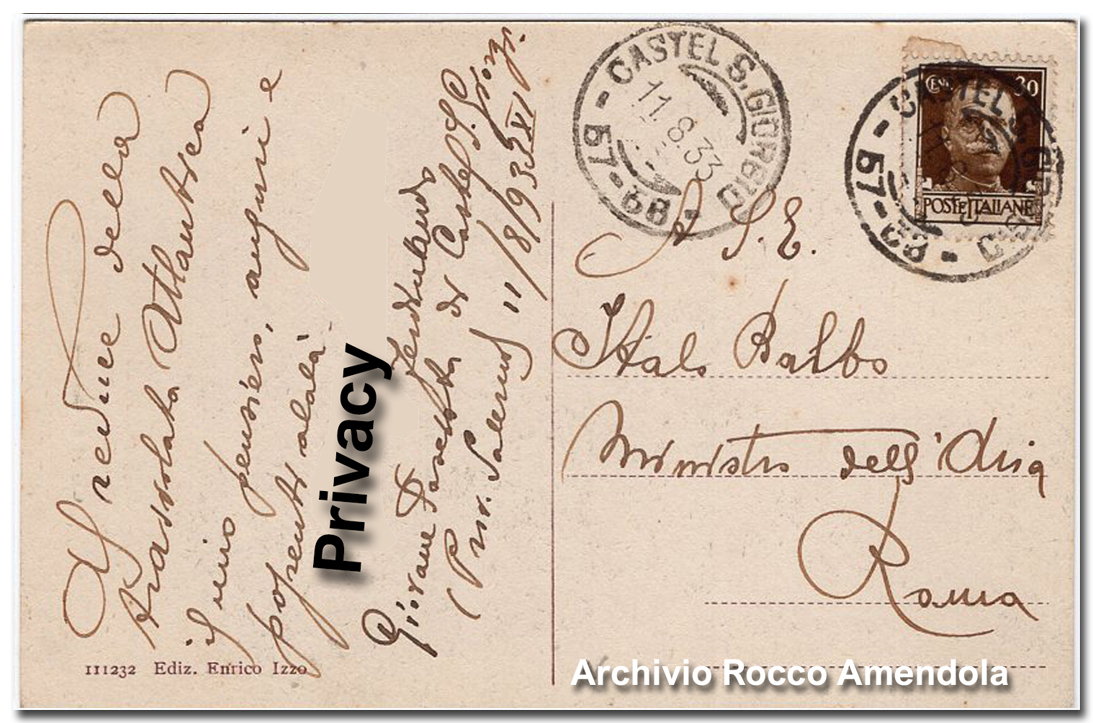 Al reduce della
trasvolata Atlantica
il mio pensiero, auguri e
potenti alalà
Privacy
Giovane Fascista
di Castel S. Giorgi.
(Prov. Salerno) 11/8/933 XI
111232 Ediz. Enrico Izzo
CASTEL S. GIORGIO
11.8.33
57-68
CASTEL S. GIORGIO
57-68
CENT. 30
POSTE ITALIANE
A S.E.
Italo Balbo
Ministro dell'Aria
Roma
Archivio Rocco Amendola